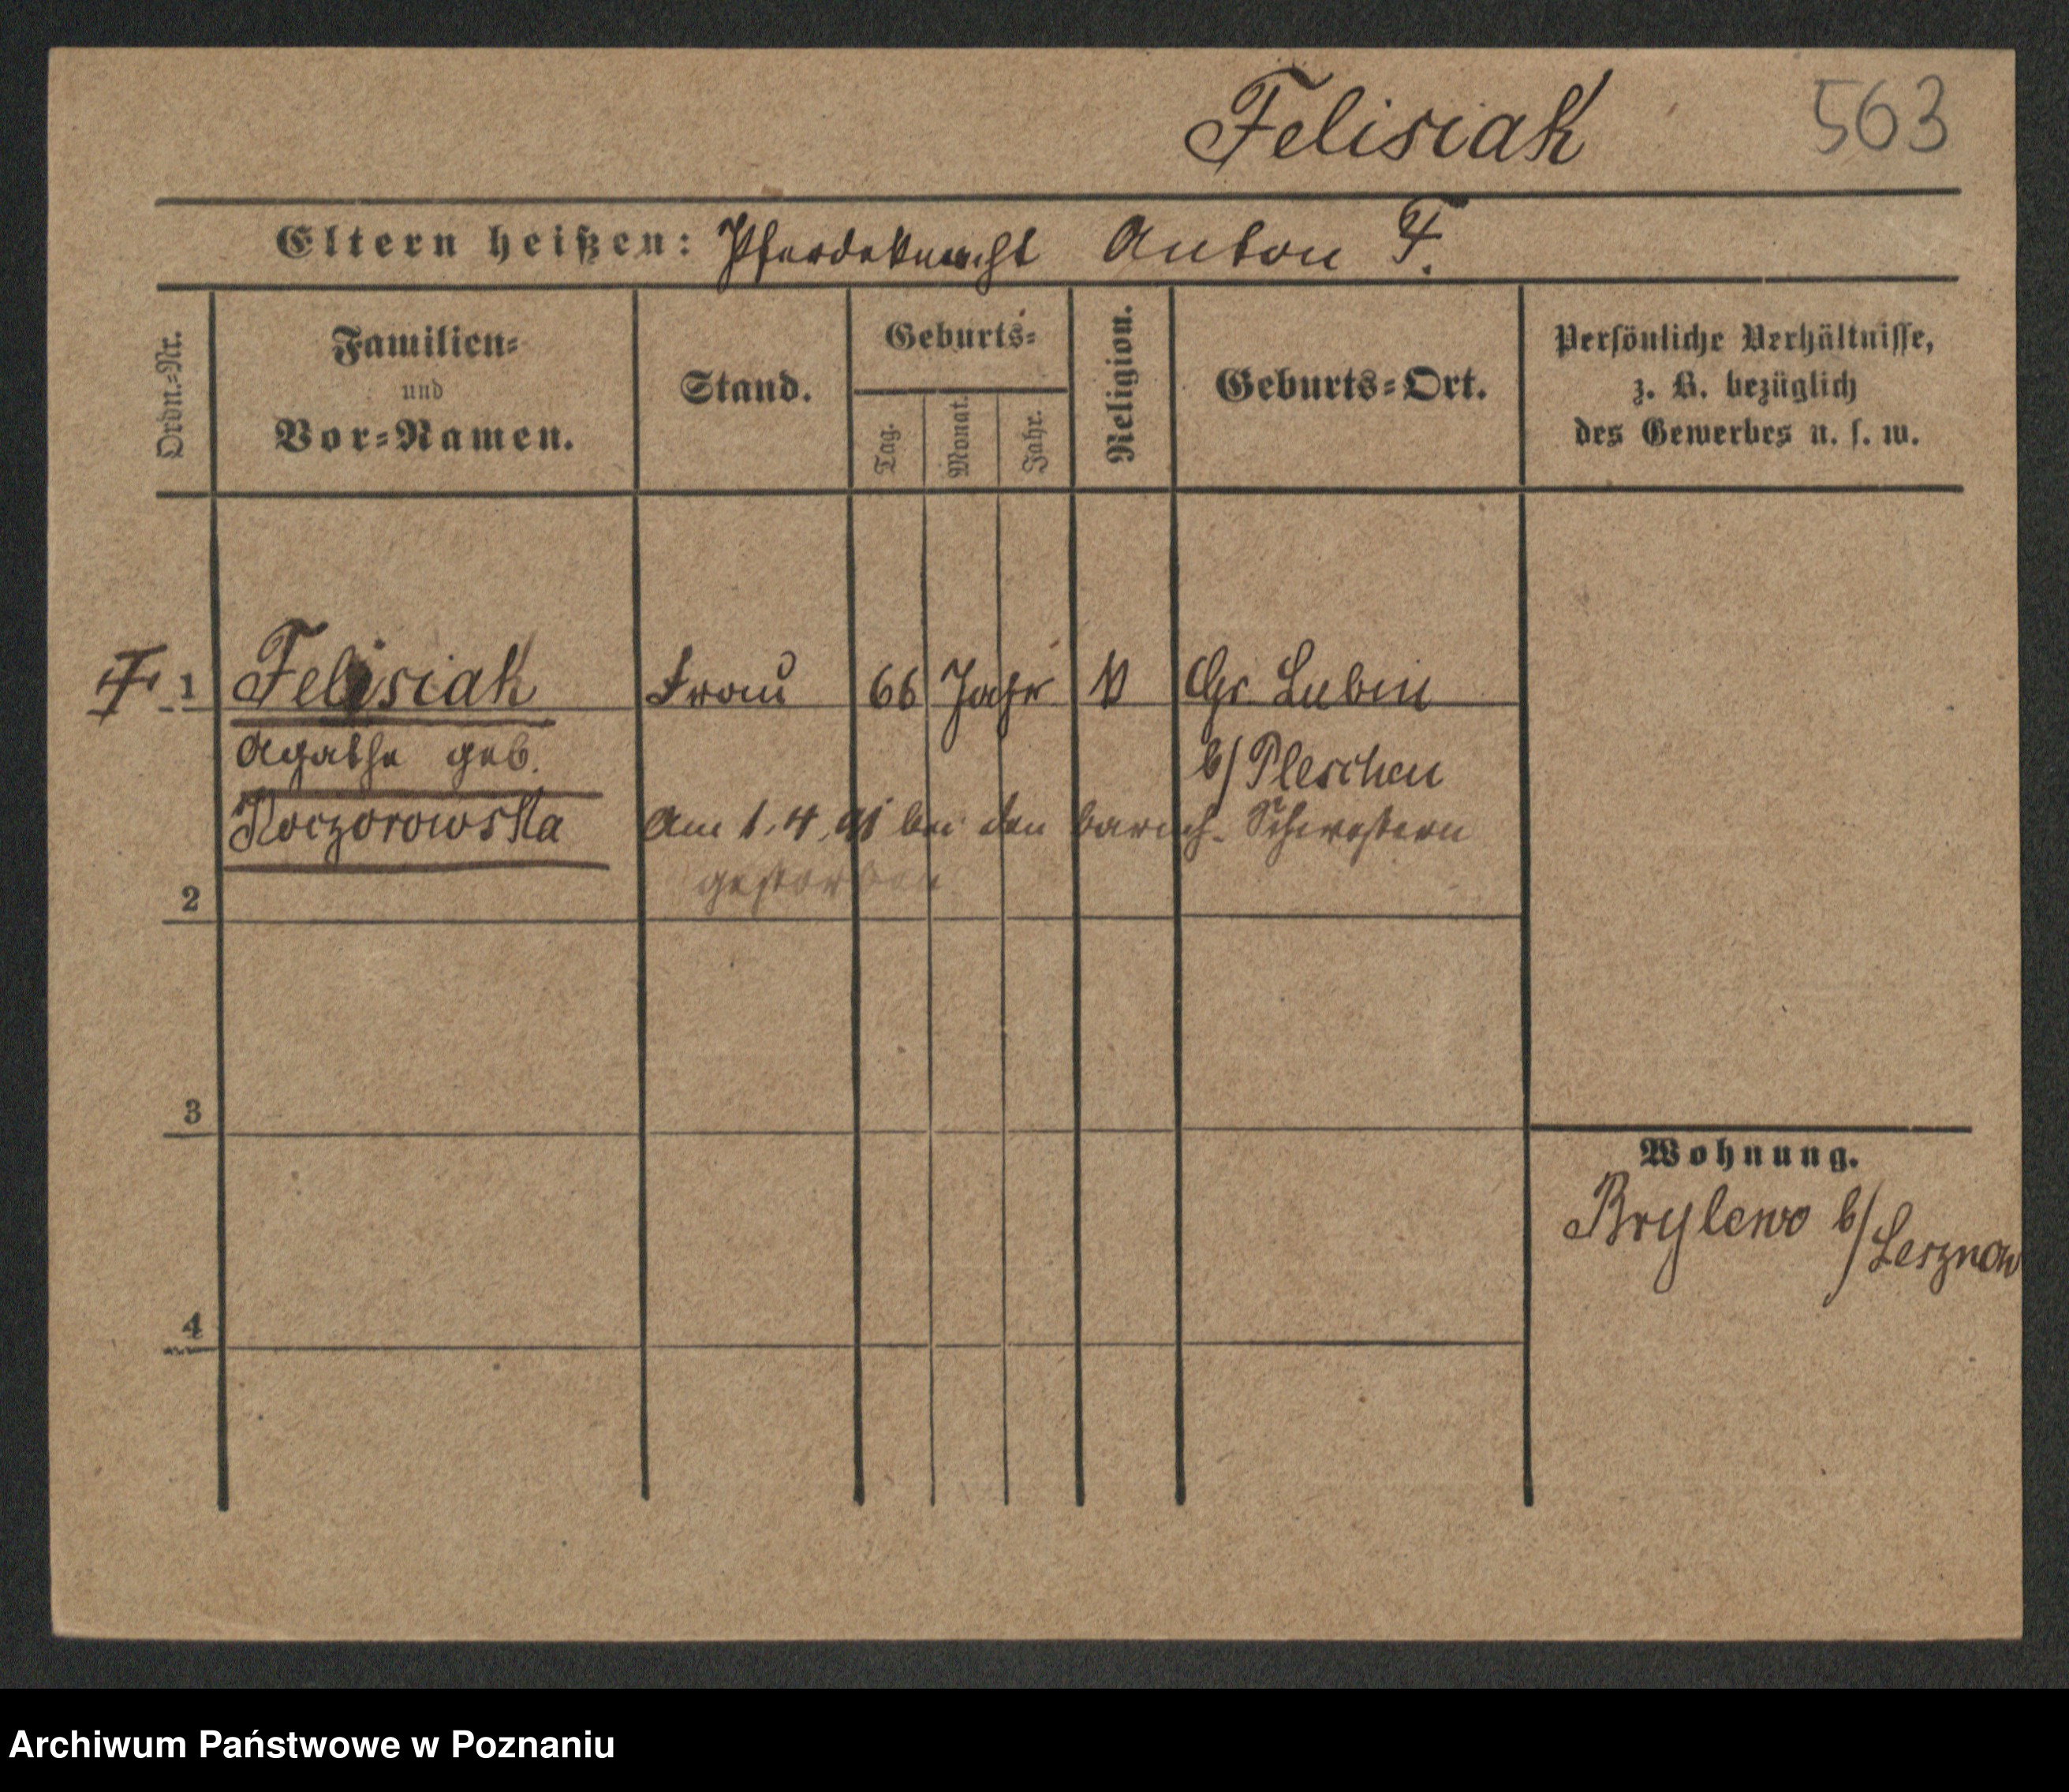 Felisiak 563
Eltern heißen: Pferdeknecht Anton F.
Ordn.=Nr.
Familien=
und
Vor=Namen.
Stand.
Geburts=
Tag.
Monat.
Jahr.
Religion.
Geburts=Ort.
Persönliche Verhältnisse,
z. B. bezüglich
des Gewerbes u. s. w.
1 Felisiak Frau 66 Jahr K Gr. Lubin
Agathe geb. b/ Pleschen
Koczorowska Am 1. 4. 91 bei den barmh. Schwestern
gestorben
2
3
Wohnung.
Brylewo b/ Lesznow
4
Archiwum Państwowe w Poznaniu